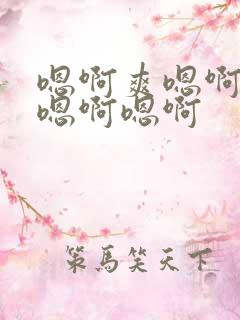 嗯啊爽嗯啊
嗯啊嗯啊
策馬笑天下